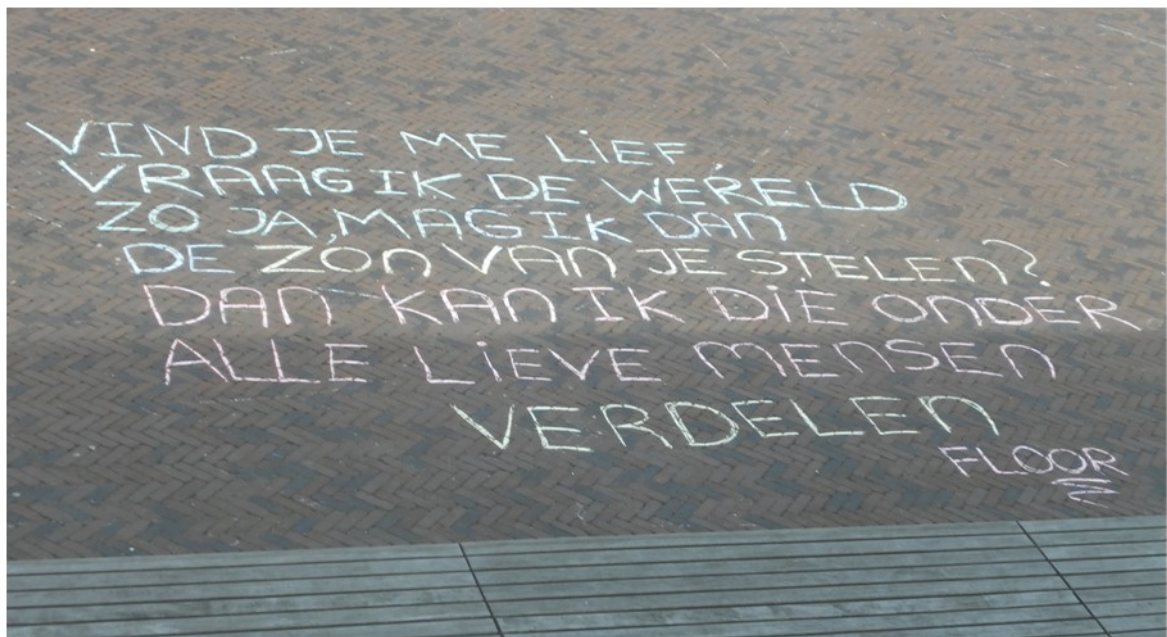 VIND JE ME LiEF
VRAAG IK DE WERELD
ZO JA, MAG IK DAN
DE ZON VAN JE STELEN?
DAN KAN IK DiE ONDER
ALLE LiEVE MENSEN
VERDELEN
FLOOR